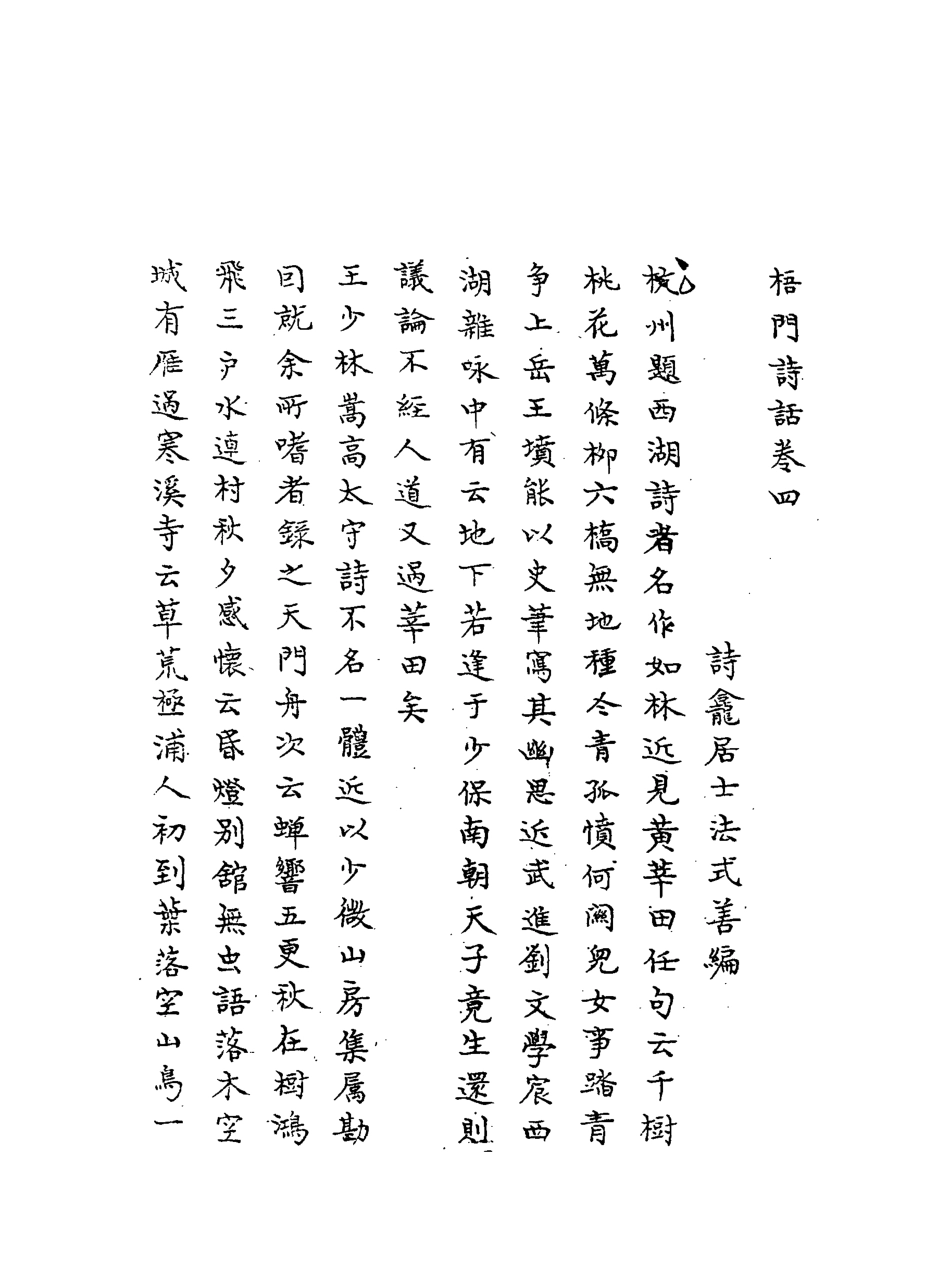 梧門詩話卷四
詩龕居士法式善編
杭州題西湖詩者名作如林近見黃莘田任句云千樹
桃花萬條柳六橋無地種冬青孤憤何關兒女事踏青
争上岳王墳能以史筆寫其幽思近武進劉文學宸西
湖雜咏中有云地下若逢于少保南朝天子竟生還則
議論不經人道又過莘田矣
王少林嵩高太守詩不名一體近以少微山房集属勘
囙就余所嗜者錄之天門舟次云蝉響五更秋在樹鴻
飛三户水連村秋夕感懷云昏燈别舘無虫語落木空
城有雁過寒溪寺云草荒極浦人初到葉落空山鳥一